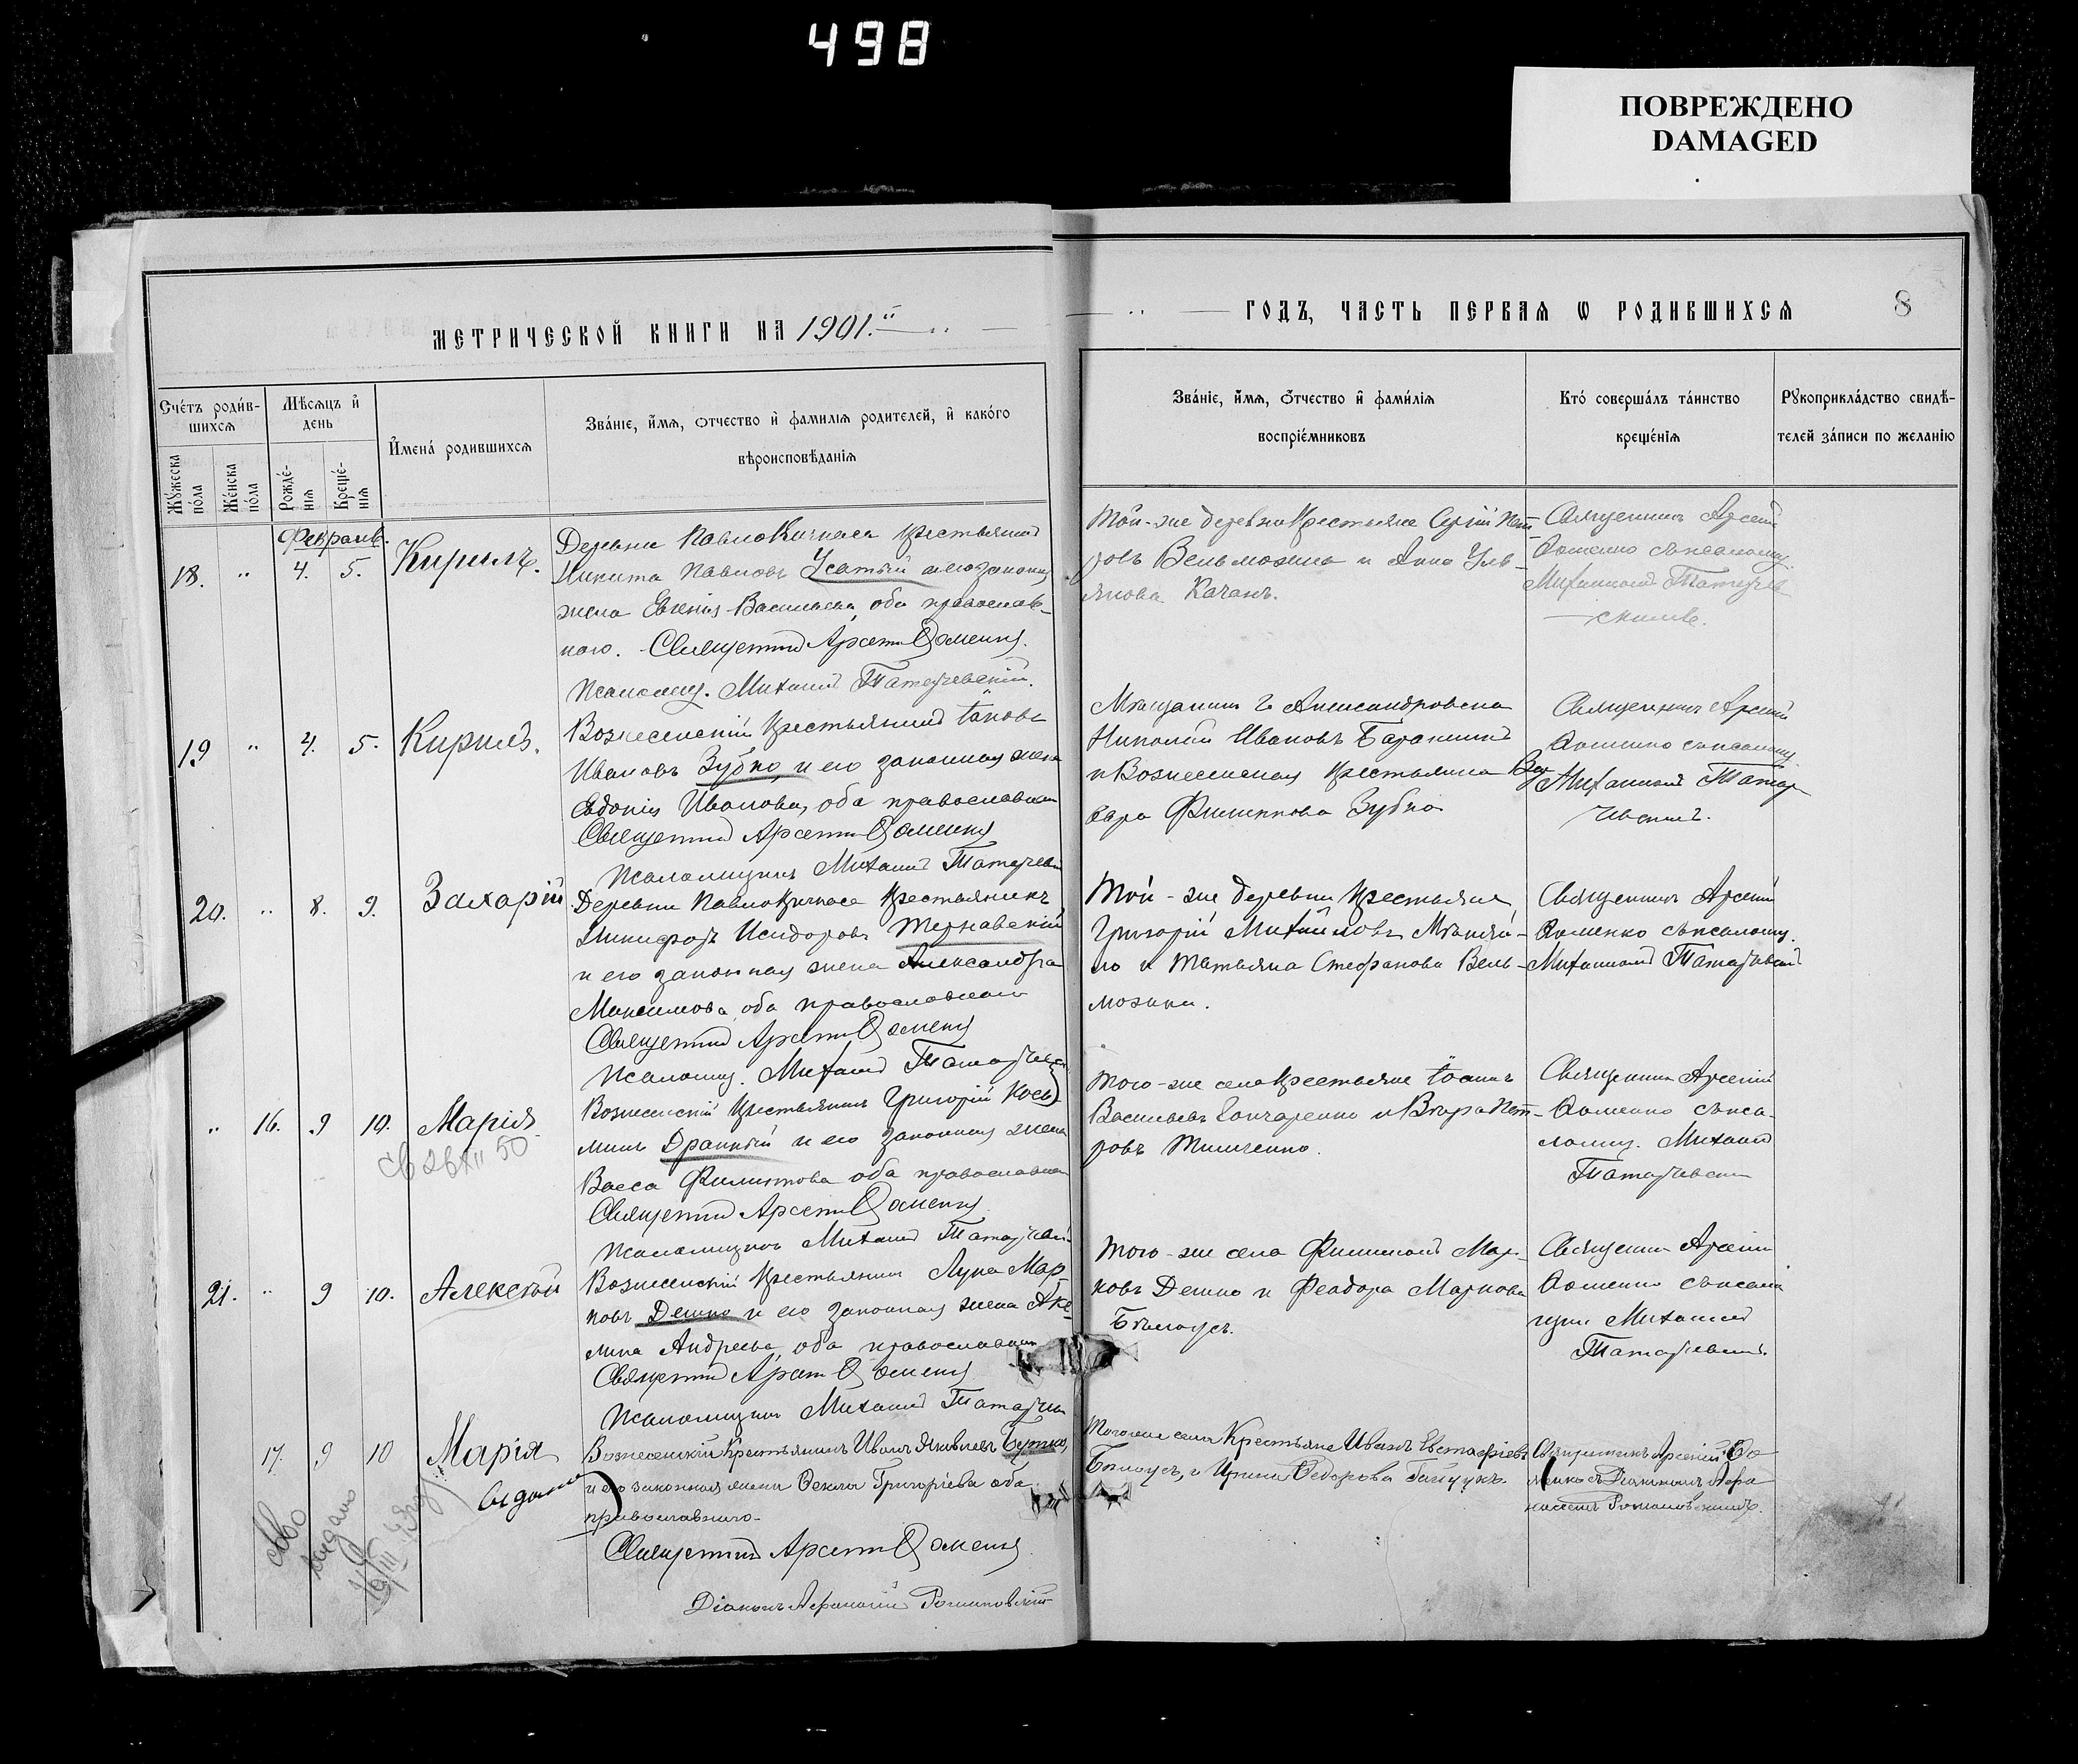 498
ПОВРЕЖДЕНО
DAMAGED
МЕТРИЧЕСКОЙ КНИГИ НА 1901.
ГОДЪ, ЧАСТЬ ПЕРВАЯ Ѡ РОДИВШИХСЯ
8
Счетъ родив-
шихся
Мѣсяцъ и
день
Имена родившихся
Званіе, имя, отчество и фамилія родителей, и какого
вѣроисповѣданія
Мужеска
пола
Женска
пола
Рожде-
нія
Креще-
нія
Званіе, имя, отчество и фамилія
воспріемниковъ
Кто совершалъ таинство
крещенія
Рукоприкладство свидѣ-
телей записи по желанію
Февраль.
18. " 4. 5. Кирилъ.
Деревни Крестьянинъ
Никита Павловъ Усатый и его законная
жена Евгенія Васильева, оба православ-
наго. Священникъ Арсеній Ѳоменко.
Псаломщ. Михаилъ Татарчевскій.
Той-же деревни Крестьяне Сергій Пет-
ровъ Вельможка и Анна Уль-
янова Качанъ.
Священникъ Арсеній
Ѳоменко съ псаломщ.
Михаиломъ Татарчев-
скимъ.
19 " 4. 5. Кирилъ.
Вознесенскій Крестьянинъ Іаковъ
Ивановъ Зубко, и его законная жена
Евдокія Иванова, оба православнаго
Священникъ Арсеній Ѳоменко
Псаломщикъ Михаилъ Татарчевскій
Мѣщанинъ г. Александровска
Николай Ивановъ
и Вознесенская Крестьянка Вар-
вара Филиппова Зубко
Священникъ Арсеній
Ѳоменко съ псаломщ.
Михаиломъ Татар-
чевскимъ.
20. " 8. 9. Захарій.
Деревни Крестьянинъ
Никифоръ Исидоровъ Тернавскій
и его законная жена Александра
Максимова, оба православнаго
Священникъ Арсеній Ѳоменко
Псаломщ. Михаилъ Татарчевскій
Той-же деревни Крестьяне
Григорій Михайловъ
и Татьяна Стефанова Вель-
можка.
Священникъ Арсеній
Ѳоменко съ псаломщ.
Михаиломъ Татарчевскимъ
" 16. 9 10. Марія
Св 26 XII 50
Вознесенскій Крестьянинъ Григорій Косьм-
минъ Дранный и его законная жена
Васса Филиппова оба православнаго
Священникъ Арсеній Ѳоменко
Псаломщикъ Михаилъ Татарчевскій
Того-же села Крестьяне Іоаннъ
Васильевъ Гончаренко и Вѣра Пет-
ровъ Тимченко.
Священникъ Арсеній
Ѳоменко съ пса-
ломщ. Михаиломъ
Татарчевскимъ
21. " 9 10. Алексѣй
Вознесенскій Крестьянинъ Лука Мар-
ковъ Дешко и его законная жена Аки-
лина Андреева, оба православнаго
Священникъ Арсеній Ѳоменко
Псаломщикъ Михаилъ Татарчевскій
Того-же села Филимонъ Мар-
ковъ Дешко и Феодора Маркова
Бѣлоусъ.
Священникъ Арсеній
Ѳоменко съ псалом-
щик. Михаиломъ
Татарчевскимъ.
17. 9 10 Марія
выдана
Вознесенскій Крестьянинъ Иванъ Яковлевъ Бутко,
и его законная жена Ѳекла Григорьева оба
православнаго.
Священникъ Арсеній Ѳоменко
Діаконъ Аѳанасій Романовскій
Того-же села Крестьяне Иванъ Евстафіевъ
Бѣлоусъ, и Ирина Ѳедорова Гайдукъ.
Священникъ Арсеній Ѳо-
менко съ Діакономъ Аѳа-
насіемъ Романовскимъ.
Св-во
выдано